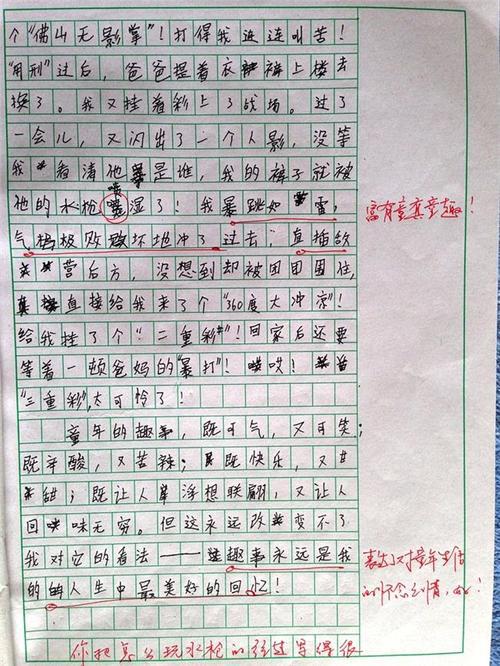 个“佛山无影掌”！打得我连连叫苦！
“用刑”过后，爸爸提着衣裤上楼去
换了。我又挂着彩上了战场。过了
一会儿，又闪出了一个人影，没等
我看清他是谁，我的裤子就被
他的水枪喷湿了！我暴跳如雷，
富有童真童趣！
气极败坏地冲了过去，直插敌
营后方，没想到却被团团围住，
直接给我来了个“360度大冲凉”！
给我挂了个“二重彩”！回家后还要
等着一顿爸妈的“暴打”！哎！
“三重彩”，太可怜了！
童年的趣事，既可气，又可笑；
既辛酸，又苦辣；既快乐，又
甜；既让人浮想联翩，又让人
回味无穷。但这永远改变不了
我对它的看法——趣事永远是我
表达了对童年生活
的人生中最美好的回忆！
的怀念之情，
你把怎么玩水枪的经过写得很